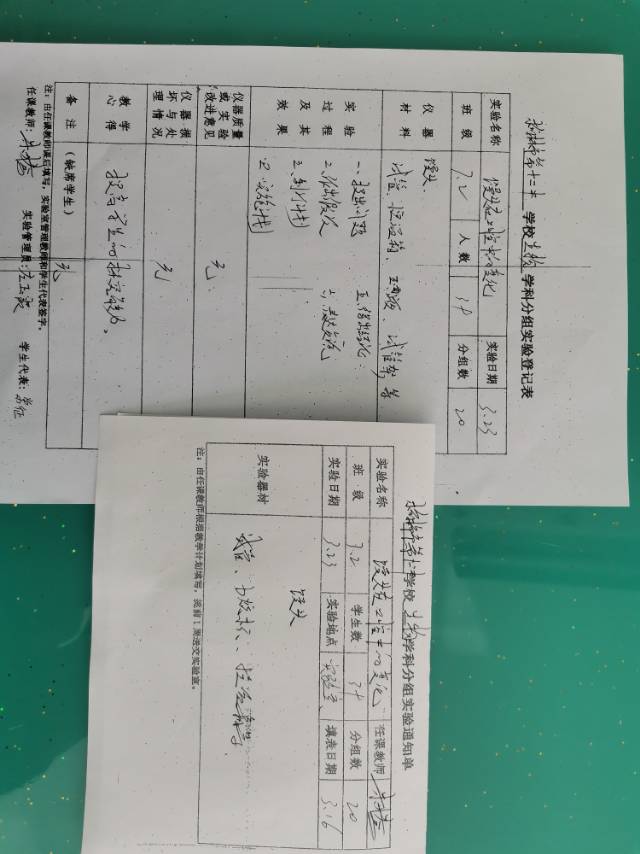 学校生物学科分组实验登记表
实验名称 馒头在口腔中的变化 实验日期 3.23
班级 7.2 人数 34 分组数 20
仪器材料 馒头、
试管、恒温箱、试管架等
实验过程及其效果
一、提出问题
二、作出假设
三、制订计划
四、实施计划
五、得出结论
六、表达交流
仪器质量或实验改进意见 无
仪器损坏与处理情况 无
教学心得 提高学生的探究能力。
备注(缺席学生) 无
注:由任课教师课后填写,实验室管理教师和学生代表签字。
任课教师: 实验管理员: 学生代表:
学校生物学科分组实验通知单
实验名称 馒头在口腔中的变化 任课教师
班级 7.2 学生数 34 分组数 20
实验日期 3.23 实验地点 实验室 填表日期 3.16
实验器材 馒头
试管、
注:由任课教师根据教学计划填写,提前1周送交实验室。